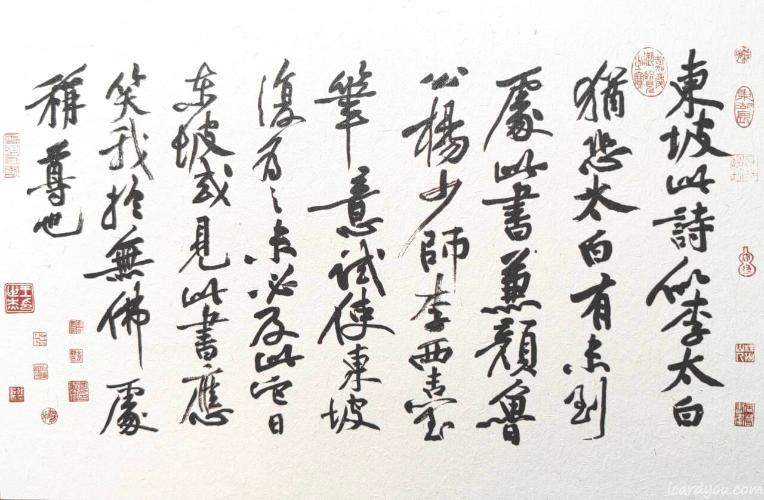 東坡此詩似李太白
猶恐太白有未到
處此書兼顏魯
公楊少師李西臺
筆意試使東坡
復為之未必及此它日
東坡或見此書應
笑我於無佛處
稱尊也
icardyou.com